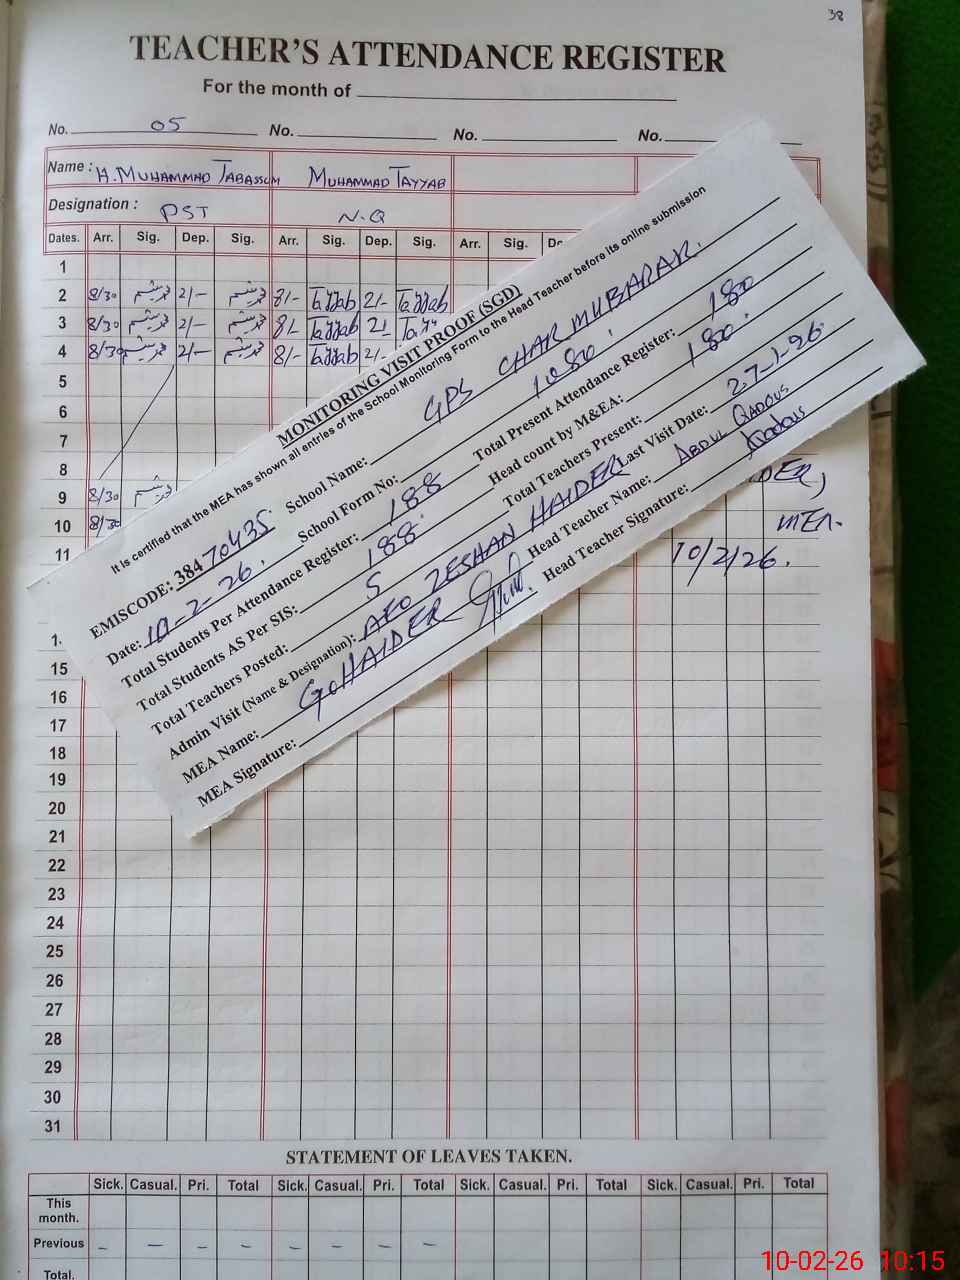 38
TEACHER'S ATTENDANCE REGISTER
For the month of
No. 05 No. No. No.
Name : H. MUHAMMAD TABASSUM MUHAMMAD TAYYAB
Designation : PST N.Q
Dates. Arr. Sig. Dep. Sig. Arr. Sig. Dep. Sig. Arr. Sig.
1
2 8/30 2/- 8/- Tayyab 2/- Tayyab
3 8/30 2/- 8/- Tayyab 2/-
4 8/30 2/- 8/- Tayyab 2/-
5
6
7
8
9 8/30
10 8/30
11
15
16
17
18
19
20
21
22
23
24
25
26
27
28
29
30
31
MONITORING VISIT PROOF (SGD)
It is certified that the MEA has shown all entries of the School Monitoring Form to the Head Teacher before its online submission
EMISCODE: 38470435 School Name: GPS CHAK MUBARAK.
Date: 10-2-26. School Form No: 1080.
Total Students Per Attendance Register: 188 Total Present Attendance Register: 180
Total Students AS Per SIS: 188 Head count by M&EA: 180.
Total Teachers Posted: 5 Total Teachers Present:
Admin Visit (Name & Designation): AEO ZESHAN HAIDER Last Visit Date: 27-1-26.
MEA Name: G. HAIDER Head Teacher Name: ABDUL QADOUS
MEA Signature: Head Teacher Signature: Qadous
DER)
MEA.
10/2/26.
STATEMENT OF LEAVES TAKEN.
Sick. Casual. Pri. Total Sick. Casual. Pri. Total Sick. Casual. Pri. Total Sick. Casual. Pri. Total
This month.
Previous - - - - - - - -
Total.
10-02-26 10:15